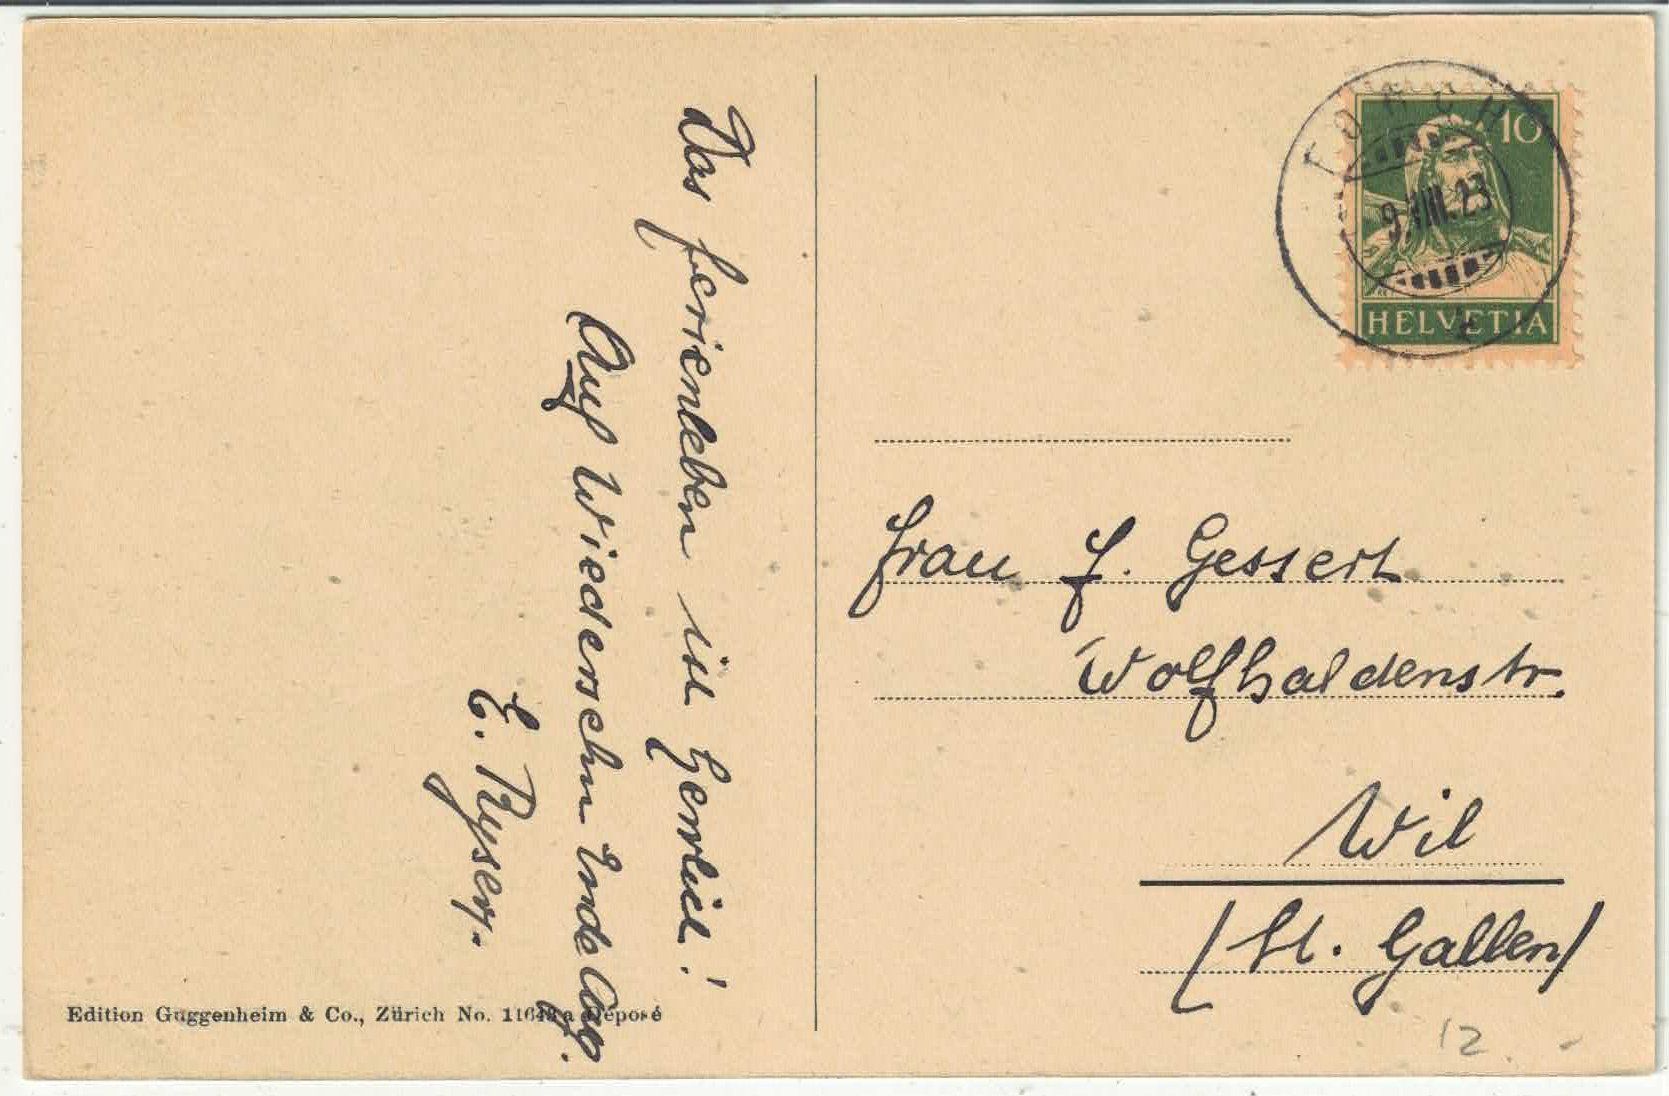 Das Ferienleben ist herrlich!
Auf Wiedersehn Ende Aug.
E. Ryser.
Edition Guggenheim & Co., Zürich No. 11643 a Déposé
10
9.VIII.23
HELVETIA
Frau F. Gessert
Wolfhaldenstr.
Wil
(St. Gallen)
12.